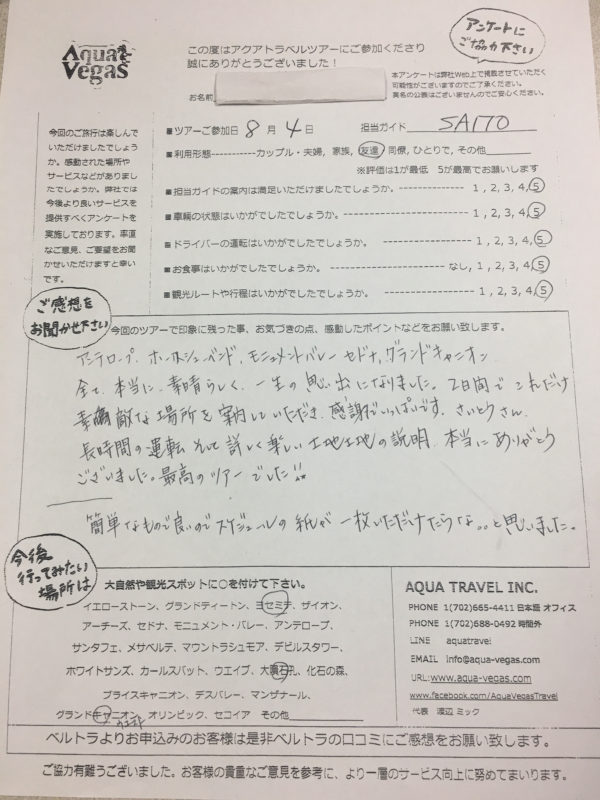 Aqua Vegas
この度はアクアトラベルツアーにご参加くださり
誠にありがとうございました！
アンケートに
ご協力下さい
本アンケートは弊社Web上で掲載させていただく
可能性がございますのでご了承ください。
実名の公表はございませんのでご安心ください。
お名前
今回のご旅行は楽しんで
いただけましたでしょう
か。感動された場所や
サービスなどがありまし
たでしょうか。弊社では
今後より良いサービスを
提供すべくアンケートを
実施しております。率直
なご意見、ご要望をお聞
かせいただけますと幸い
です。
■ツアーご参加日 8 月 4 日 担当ガイド SAITO
■利用形態-----------カップル・夫婦, 家族, 友達, 同僚, ひとりで, その他
※評価は1が最低 5が最高でお願いします
■担当ガイドの案内は満足いただけましたでしょうか。 ---------------- 1 , 2, 3, 4, 5
■車輌の状態はいかがでしたでしょうか。 ---------------- 1 , 2, 3, 4, 5
■ドライバーの運転はいかがでしたでしょうか。 ---------------- 1 , 2, 3, 4, 5
■お食事はいかがでしたでしょうか。 ---------------- なし, 1, 2, 3, 4, 5
■観光ルートや行程はいかがでしたでしょうか。 ---------------- 1 , 2, 3, 4, 5
ご感想を
お聞かせ下さい
今回のツアーで印象に残った事、お気づきの点、感動したポイントなどをお願い致します。
アンテロープ、ホースシューベンド、モニュメントバレー セドナ、グランドキャニオン
全て、本当に、素晴らしく、一生の思い出になりました。2日間でこれだけ
素敵な場所を案内していただき、感謝でいっぱいです。さいとうさん、
長時間の運転 そして詳しく楽しい土地土地の説明、本当にありがとう
ございました。最高のツアーでした!!
簡単なもので良いのでスケジュールの紙が一枚いただけたらな。。と思いました。
今後
行ってみたい
場所は
大自然や観光スポットに○を付けて下さい。
イエローストーン、グランドティートン、ヨセミテ、ザイオン、
アーチーズ、セドナ、モニュメント・バレー、アンテロープ、
サンタフェ、メサベルデ、マウントラシュモア、デビルスタワー、
ホワイトサンズ、カールスバット、ウエイブ、大隕石孔、化石の森、
ブライスキャニオン、デスバレー、マンザナール、
グランドキャニオン、オリンピック、セコイア その他
ウエスト
AQUA TRAVEL INC.
PHONE 1(702)665-4411 日本語 オフィス
PHONE 1(702)688-0492 時間外
LINE aquatravel
EMAIL info@aqua-vegas.com
URL:www.aqua-vegas.com
www.facebook.com/AquaVegasTravel
代表 渡辺 ミック
ベルトラよりお申込みのお客様は是非ベルトラの口コミにご感想をお願い致します。
ご協力有難うございました。お客様の貴重なご意見を参考に、より一層のサービス向上に努めてまいります。